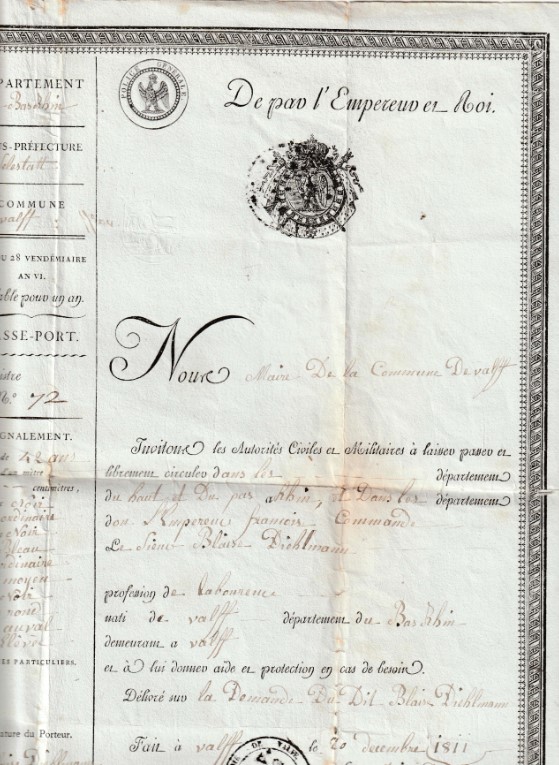 PARTEMENT
Bas Rhin
S-PRÉFECTURE
COMMUNE
valff
U 28 VENDÉMIAIRE
AN VI.
able pour un an.
ASSE-PORT.
istre
N.º 72
GNALEMENT.
42 ans
mètre
centimètres,
Noir
ordinaire
Noir
Bleau
dinaire
moyen
rond
auval
ES PARTICULIERS.
ature du Porteur.
POLICE GÉNÉRALE.
De par l'Empereur et Roi.
Nous Maire De la Commune De valff
Invitons les Autorités Civiles et Militaires à laisser passer et
librement circuler dans les département
du haut et Du pas Rhin, et Dans les département
don l'Empereur francois Commande
Le Sieur Blaise Diehlmann
profession de Laboureur
nati de valff département du Bas Rhin
demeurant a valff
et à lui donner aide et protection en cas de besoin.
Délivré sur la Demande Du Dit Blaise Diehlmann
Fait à valff le 20 decembre 1811
DE VALFF